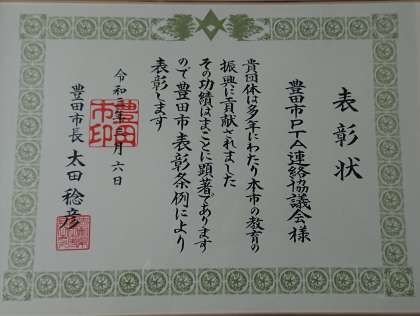 表彰状
豊田市PTA連絡協議会様
貴団体は多年にわたり本市の教育の
振興に貢献されました
その功績はまことに顕著であります
ので豊田市表彰条例により
表彰します
令和 年 月六日
豊田市長 太田稔彦
豊田
市印